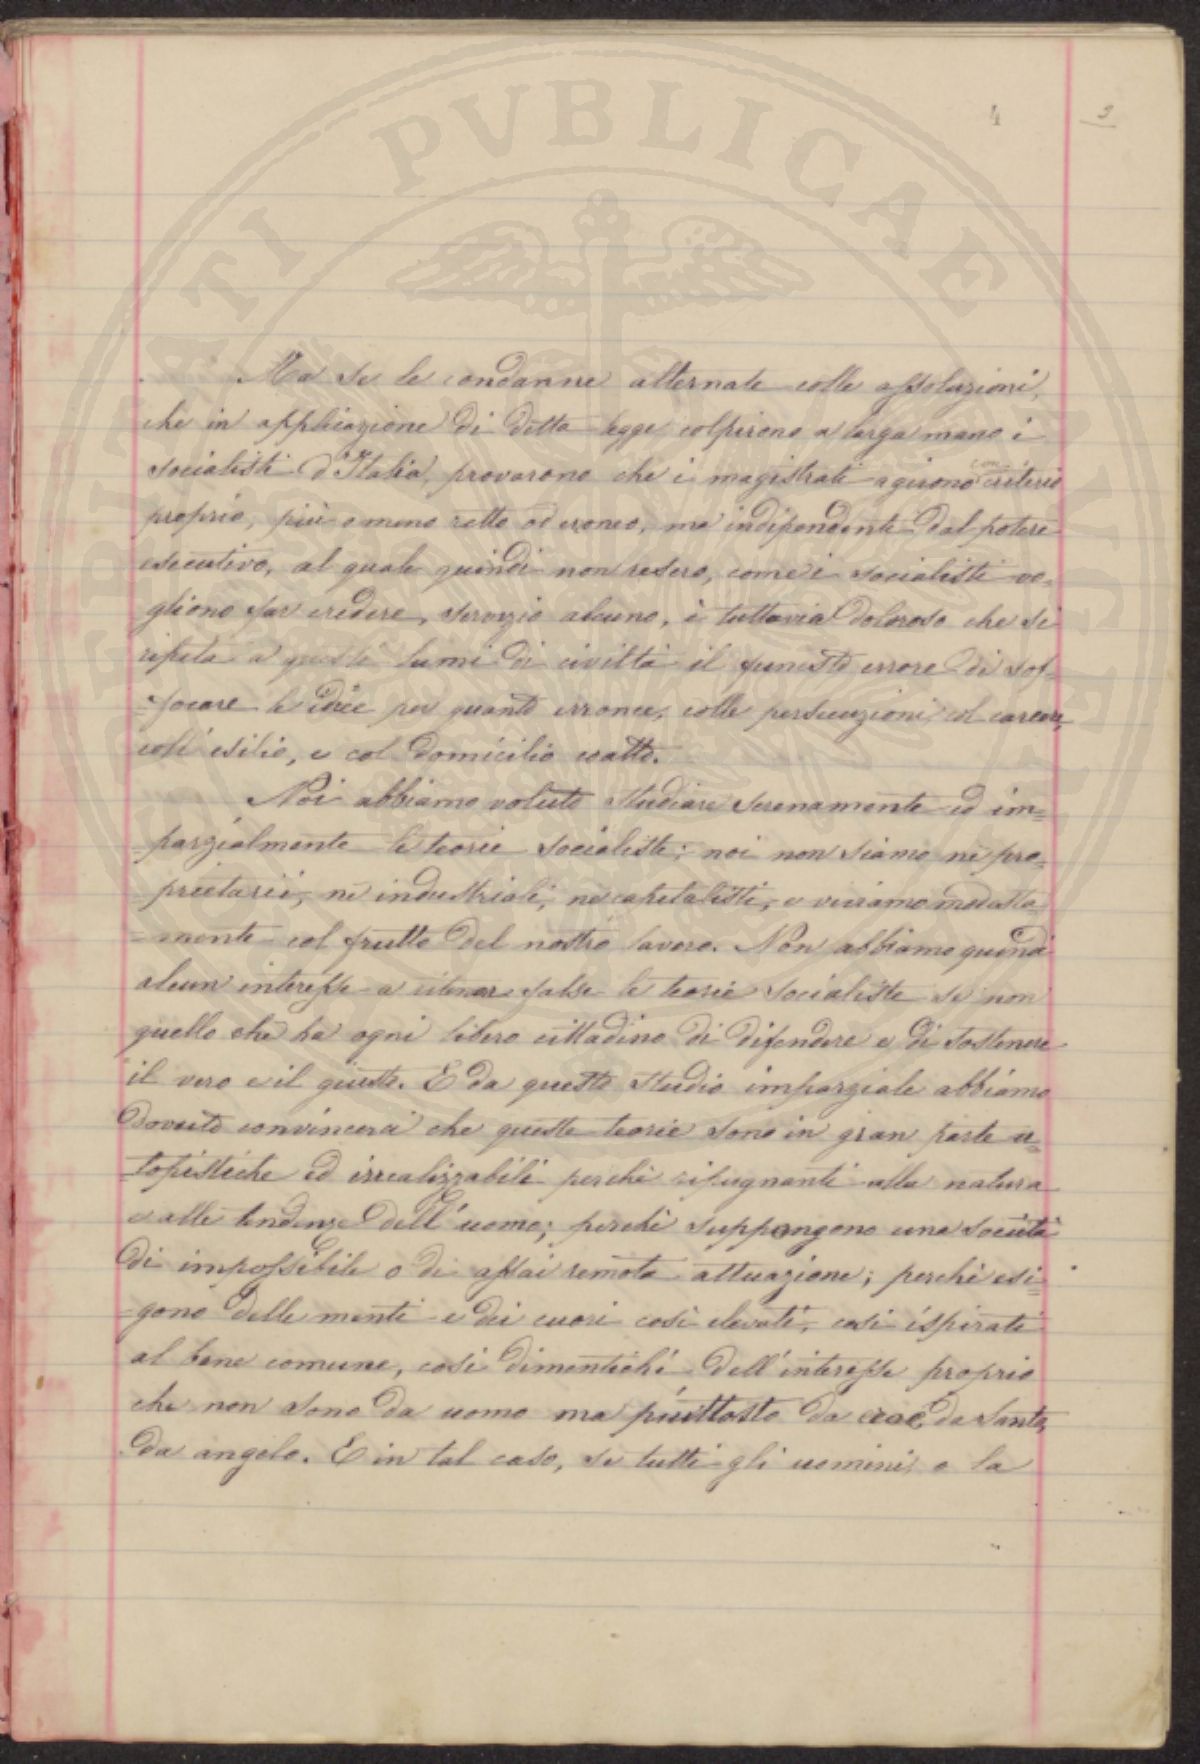 4 3
Ma se le condanne alternate colle assoluzioni,
che in applicazione di detta legge colpirono a larga mano i
socialisti d'Italia, provarono che i magistrati agirono con criterio
proprio, più o meno retto od erroneo, ma indipendente dal potere
esecutivo, al quale quindi non resero, come i socialisti vo-
gliono far credere, servizio alcuno, è tuttavia doloroso che si
ripeta a questi lumi di civiltà il funesto errore di sof-
focare le idee per quanto erronee, colle persecuzioni, col carcere,
coll'esilio, e col domicilio coatto.
Noi abbiamo voluto studiare serenamente ed im=
parzialmente le teorie socialiste; noi non siamo nè pro=
prietarii, nè industriali, nè capitalisti, e viviamo modesta=
mente col frutto del nostro lavoro. Non abbiamo quindi
alcun interesse a ritener false le teorie socialiste se non
quello che ha ogni libero cittadino di difendere e di sostenere
il vero e il giusto. E da questo studio imparziale abbiamo
dovuto convincerci che queste teorie sono in gran parte u=
topistiche ed irrealizzabili perchè ripugnanti alla natura
e alle tendenze dell'uomo; perchè suppongono una società
di impossibile o di assai remota attuazione; perchè esi=
gono delle menti e dei cuori così elevati, così ispirati
al bene comune, così dimentichi dell'interesse proprio
che non sono da uomo ma piuttosto da eroe, da santo,
da angelo. E in tal caso, se tutti gli uomini, o la
PVBLICAE